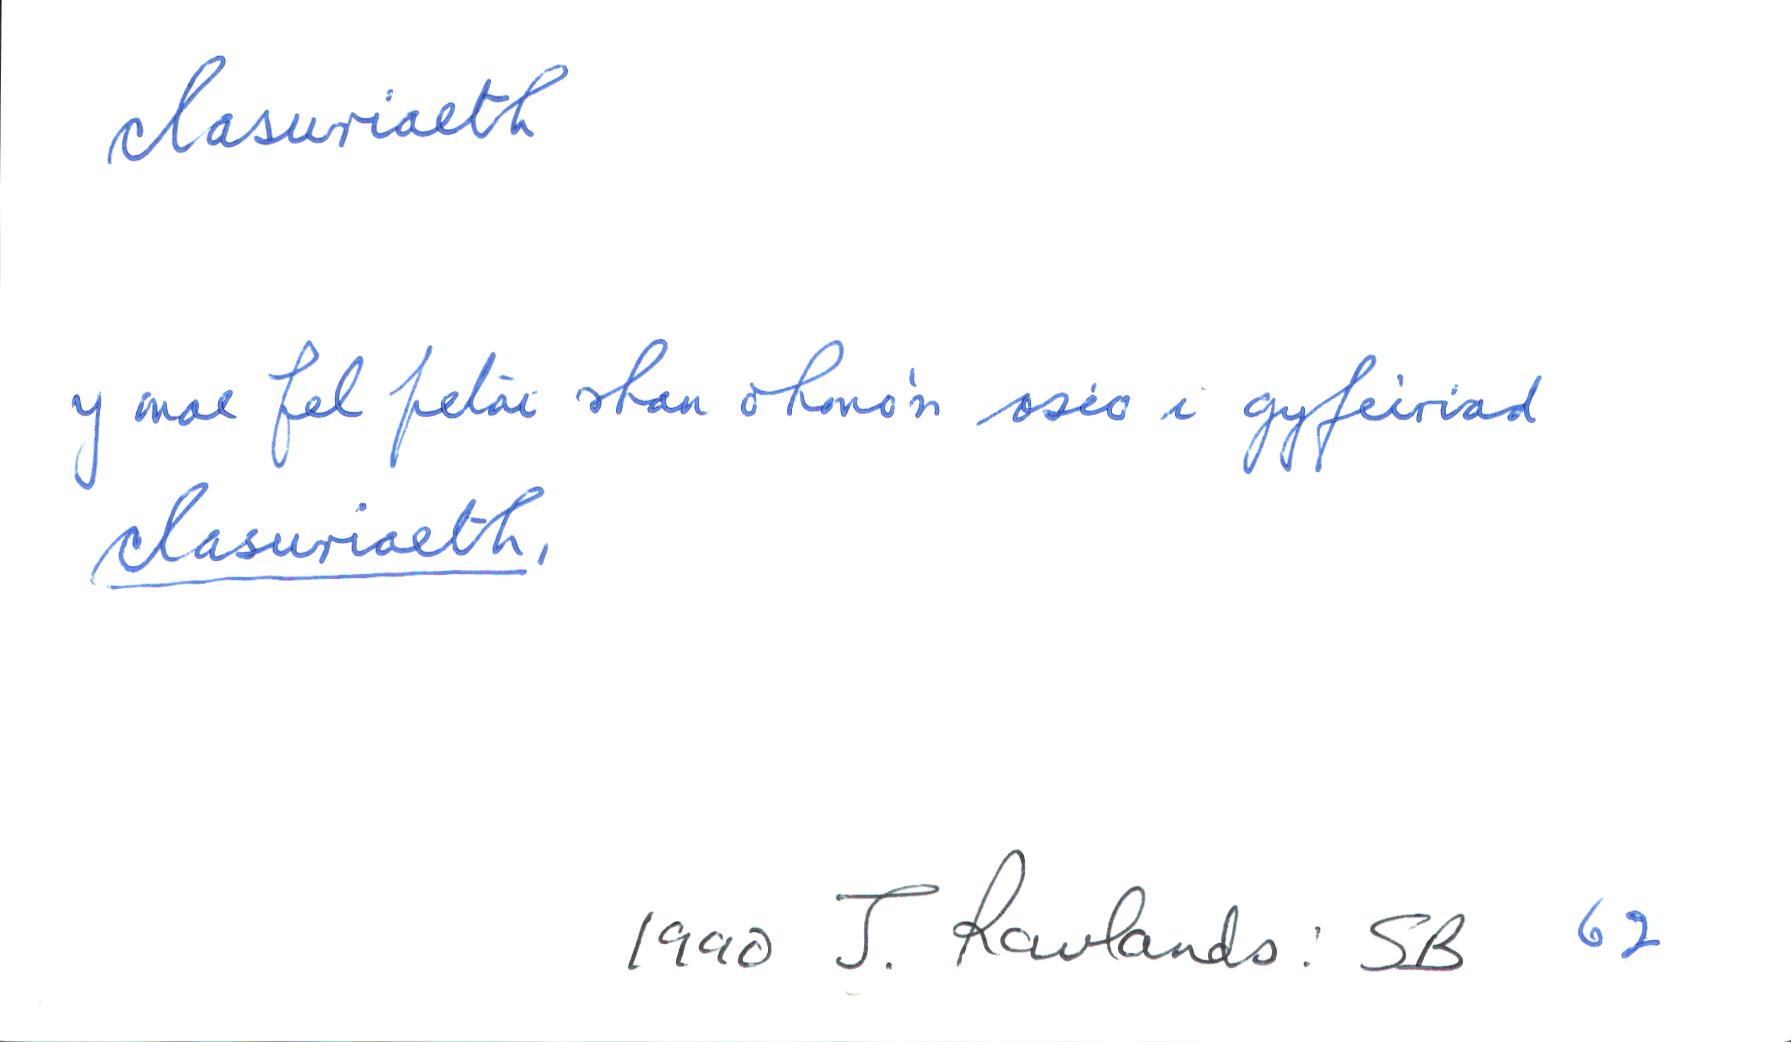 clasuriaeth
y mae fel petai rhan ohono'n osio i gyfeiriad
clasuriaeth,
1990 J. Rowlands: SB 62